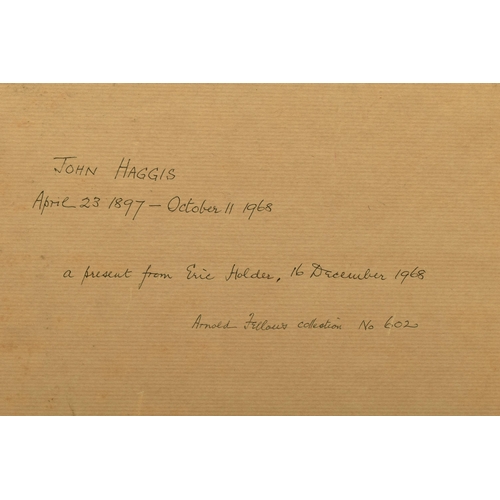 JOHN HAGGIS
April 23 1897 – October 11 1968
a present from Eric Holder, 16 December 1968
Arnold Fellows collection No 6.02